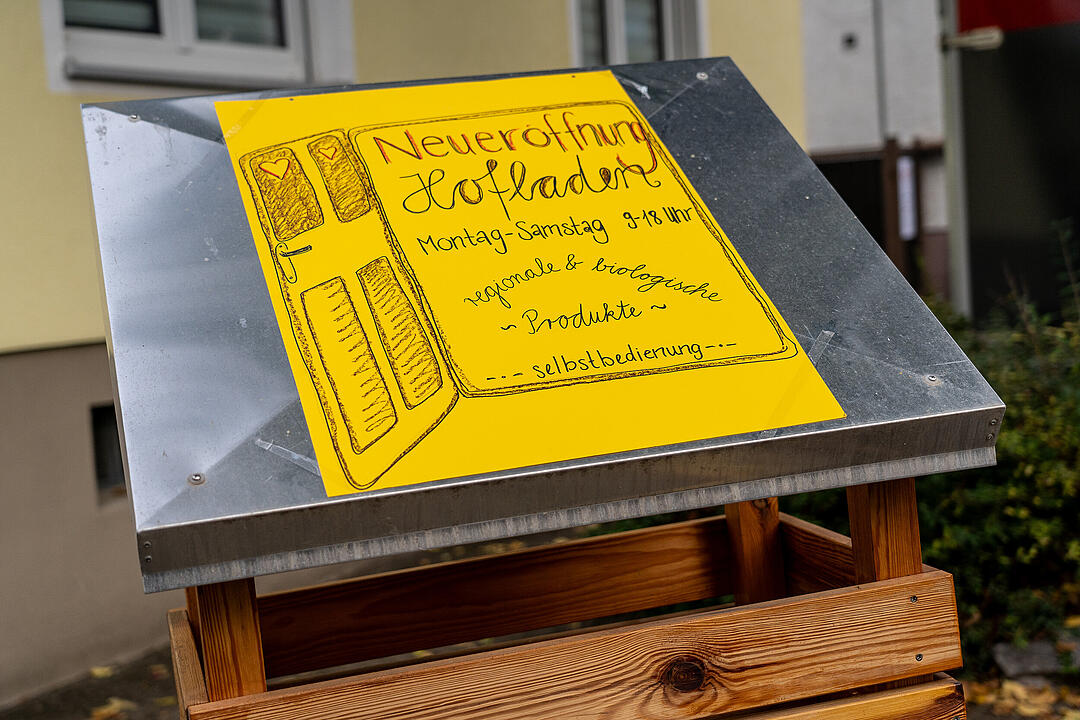 Neueröffnung
Hofladen
Montag-Samstag 9-18 Uhr
regionale & biologische
~ Produkte ~
-·- selbstbedienung -·-